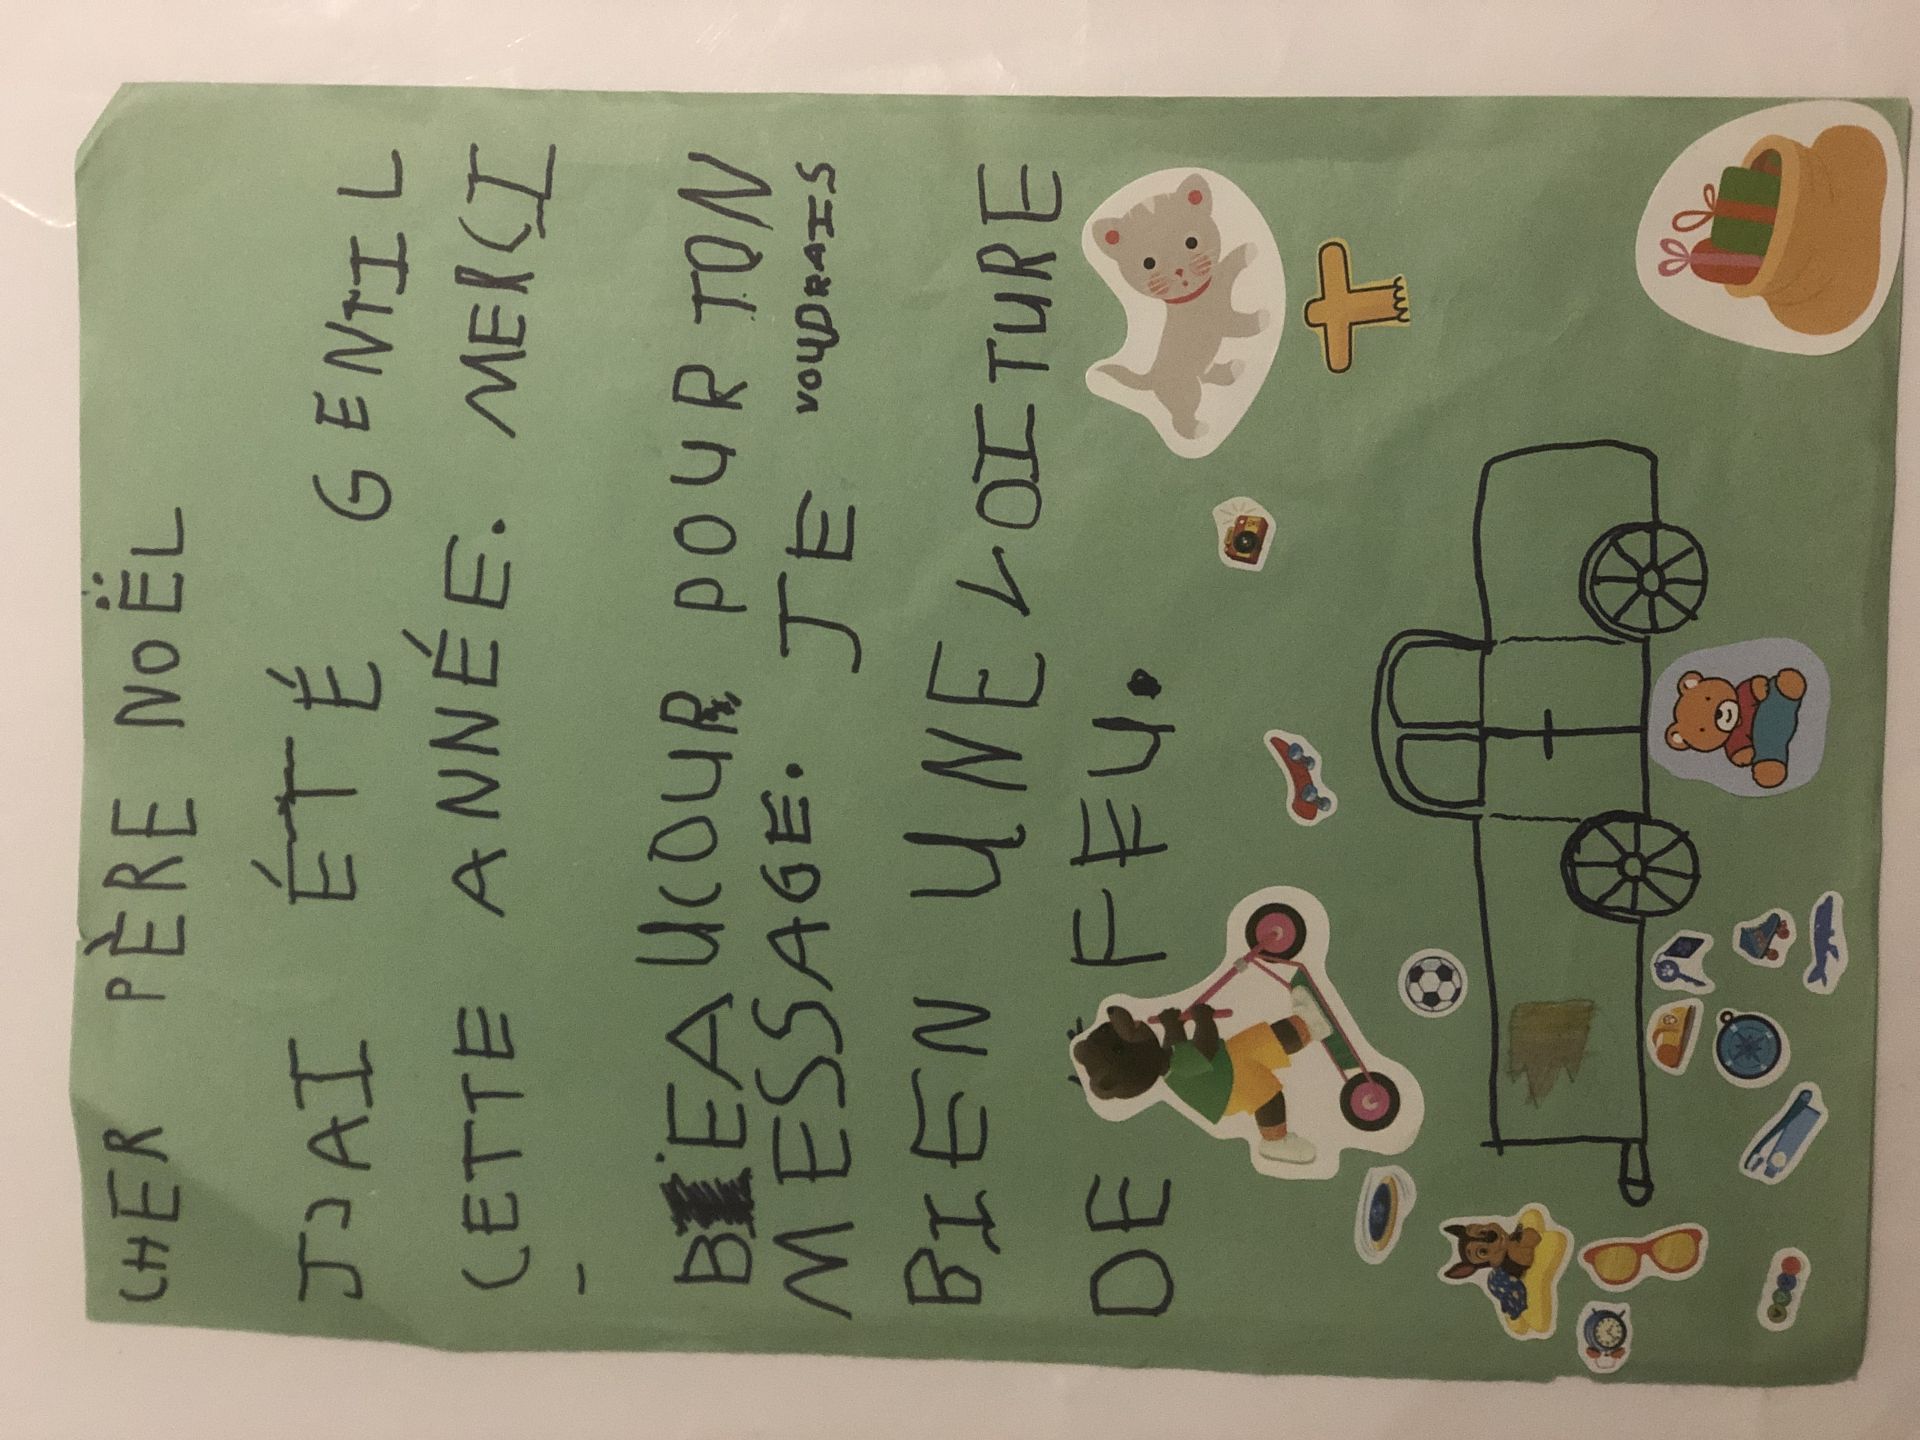 CHER PÈRE NOËL
JJAI ÉTÉ GENTIL
CETTE ANNÉE. MERCI
BEAUCOUR POUR TON
MESSAGE. JE VOUDRAIS
BIEN UNE VOITURE
DE FEU.